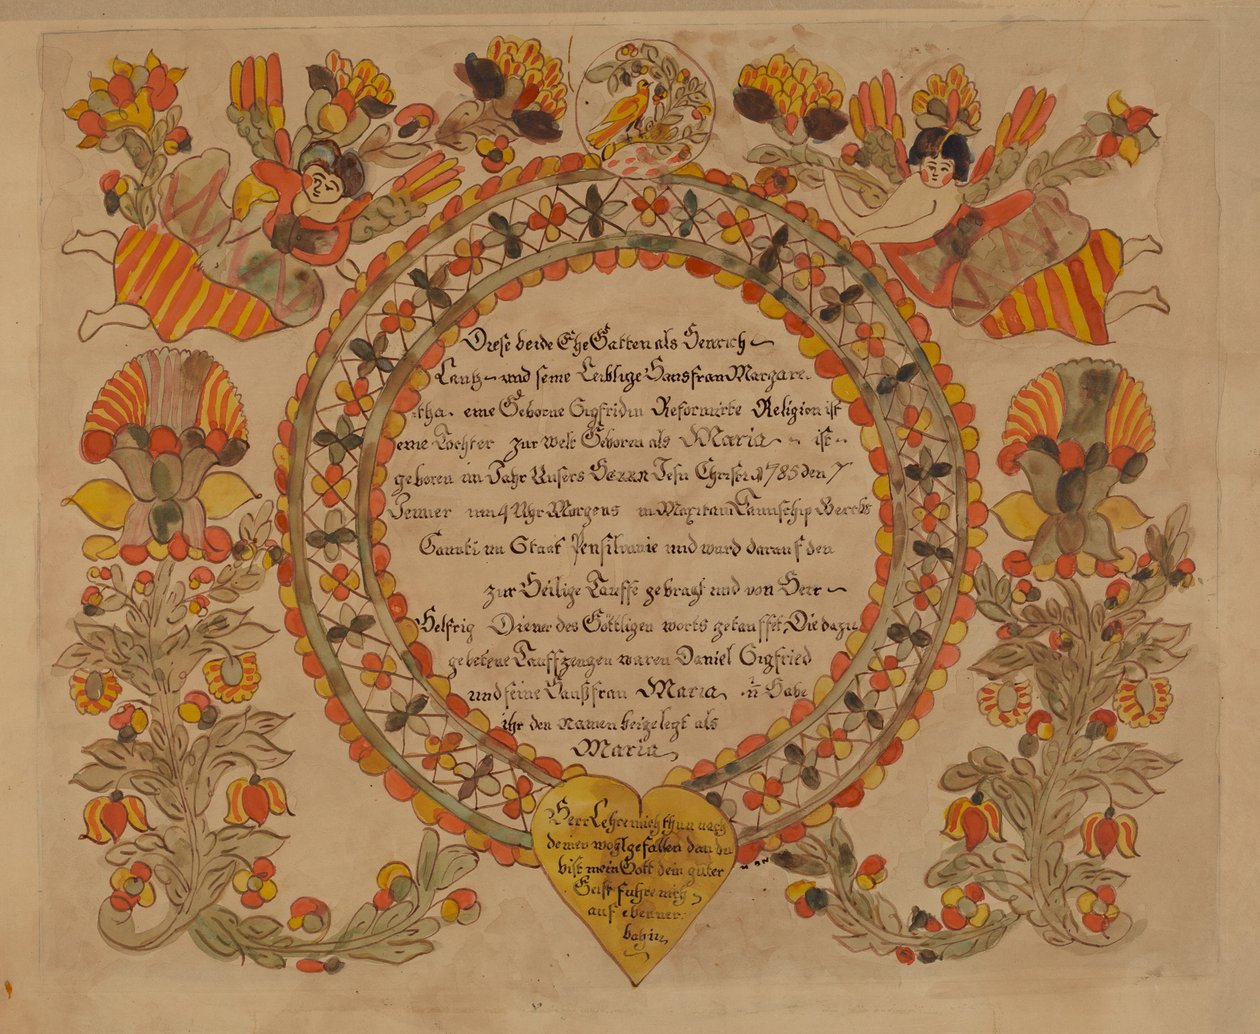 Diese beide Ehe Gatten als Henrich
Lantz und seine Leiblige Hausfrau Margare-
tha eine Geborne Sigfridin Reformirte Religion ist
eine Tochter zur welt Geboren als Maria ist
geboren im Jahr Unsers HERRN Jesu Christi 1785 den 7
Jenner um 4 Uhr Morgens in Maxitani Taunschip Bercks
Caunti im Staat Pensilvanie und ward darauf den
zur Heilige Tauffe gebragt und von Herr
Helfrig Diener des Göttligen worts getauffet, Die dazu
gebetene Tauffzeugen waren Daniel Sigfried
und seine Haußfrau Maria u Habe
ihr den namen beigelegt als
Maria
Herr Lehre mich thun nach
deinen wohlgefallen dan du
bist mein Gott dein guter
Geist fuhre mich
auf ebenner
bahin